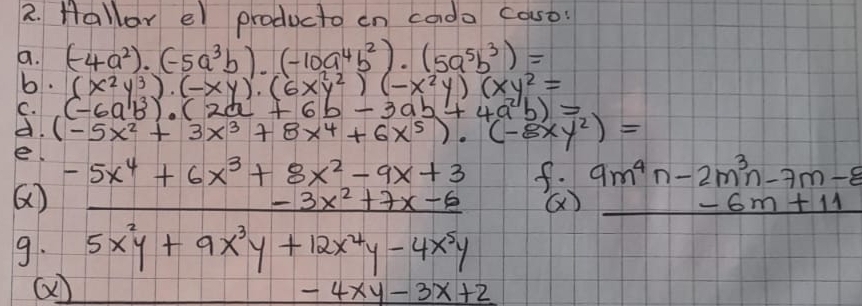 2. Hallar el producto en cada caso:
a. (-4a²).(-5a³b).(-10a⁴b²).(5a⁵b³) =
b. (x²y³).(-xy).(6x²y²)(-x²y)(xy² =
c. (-6a¹b³).(2a + 6b - 3ab + 4a²b) =
d. (-5x² + 3x³ + 8x⁴ + 6x⁵).(-8xy²) =
e.
-5x⁴ + 6x³ + 8x² - 9x + 3
(x) -3x² + 7x - 6
f. 9m⁴n - 2m³n - 7m - 8
(x) -6m + 11
g. 5x²y + 9x³y + 12x⁴y - 4x⁵y
(x) -4xy - 3x + 2